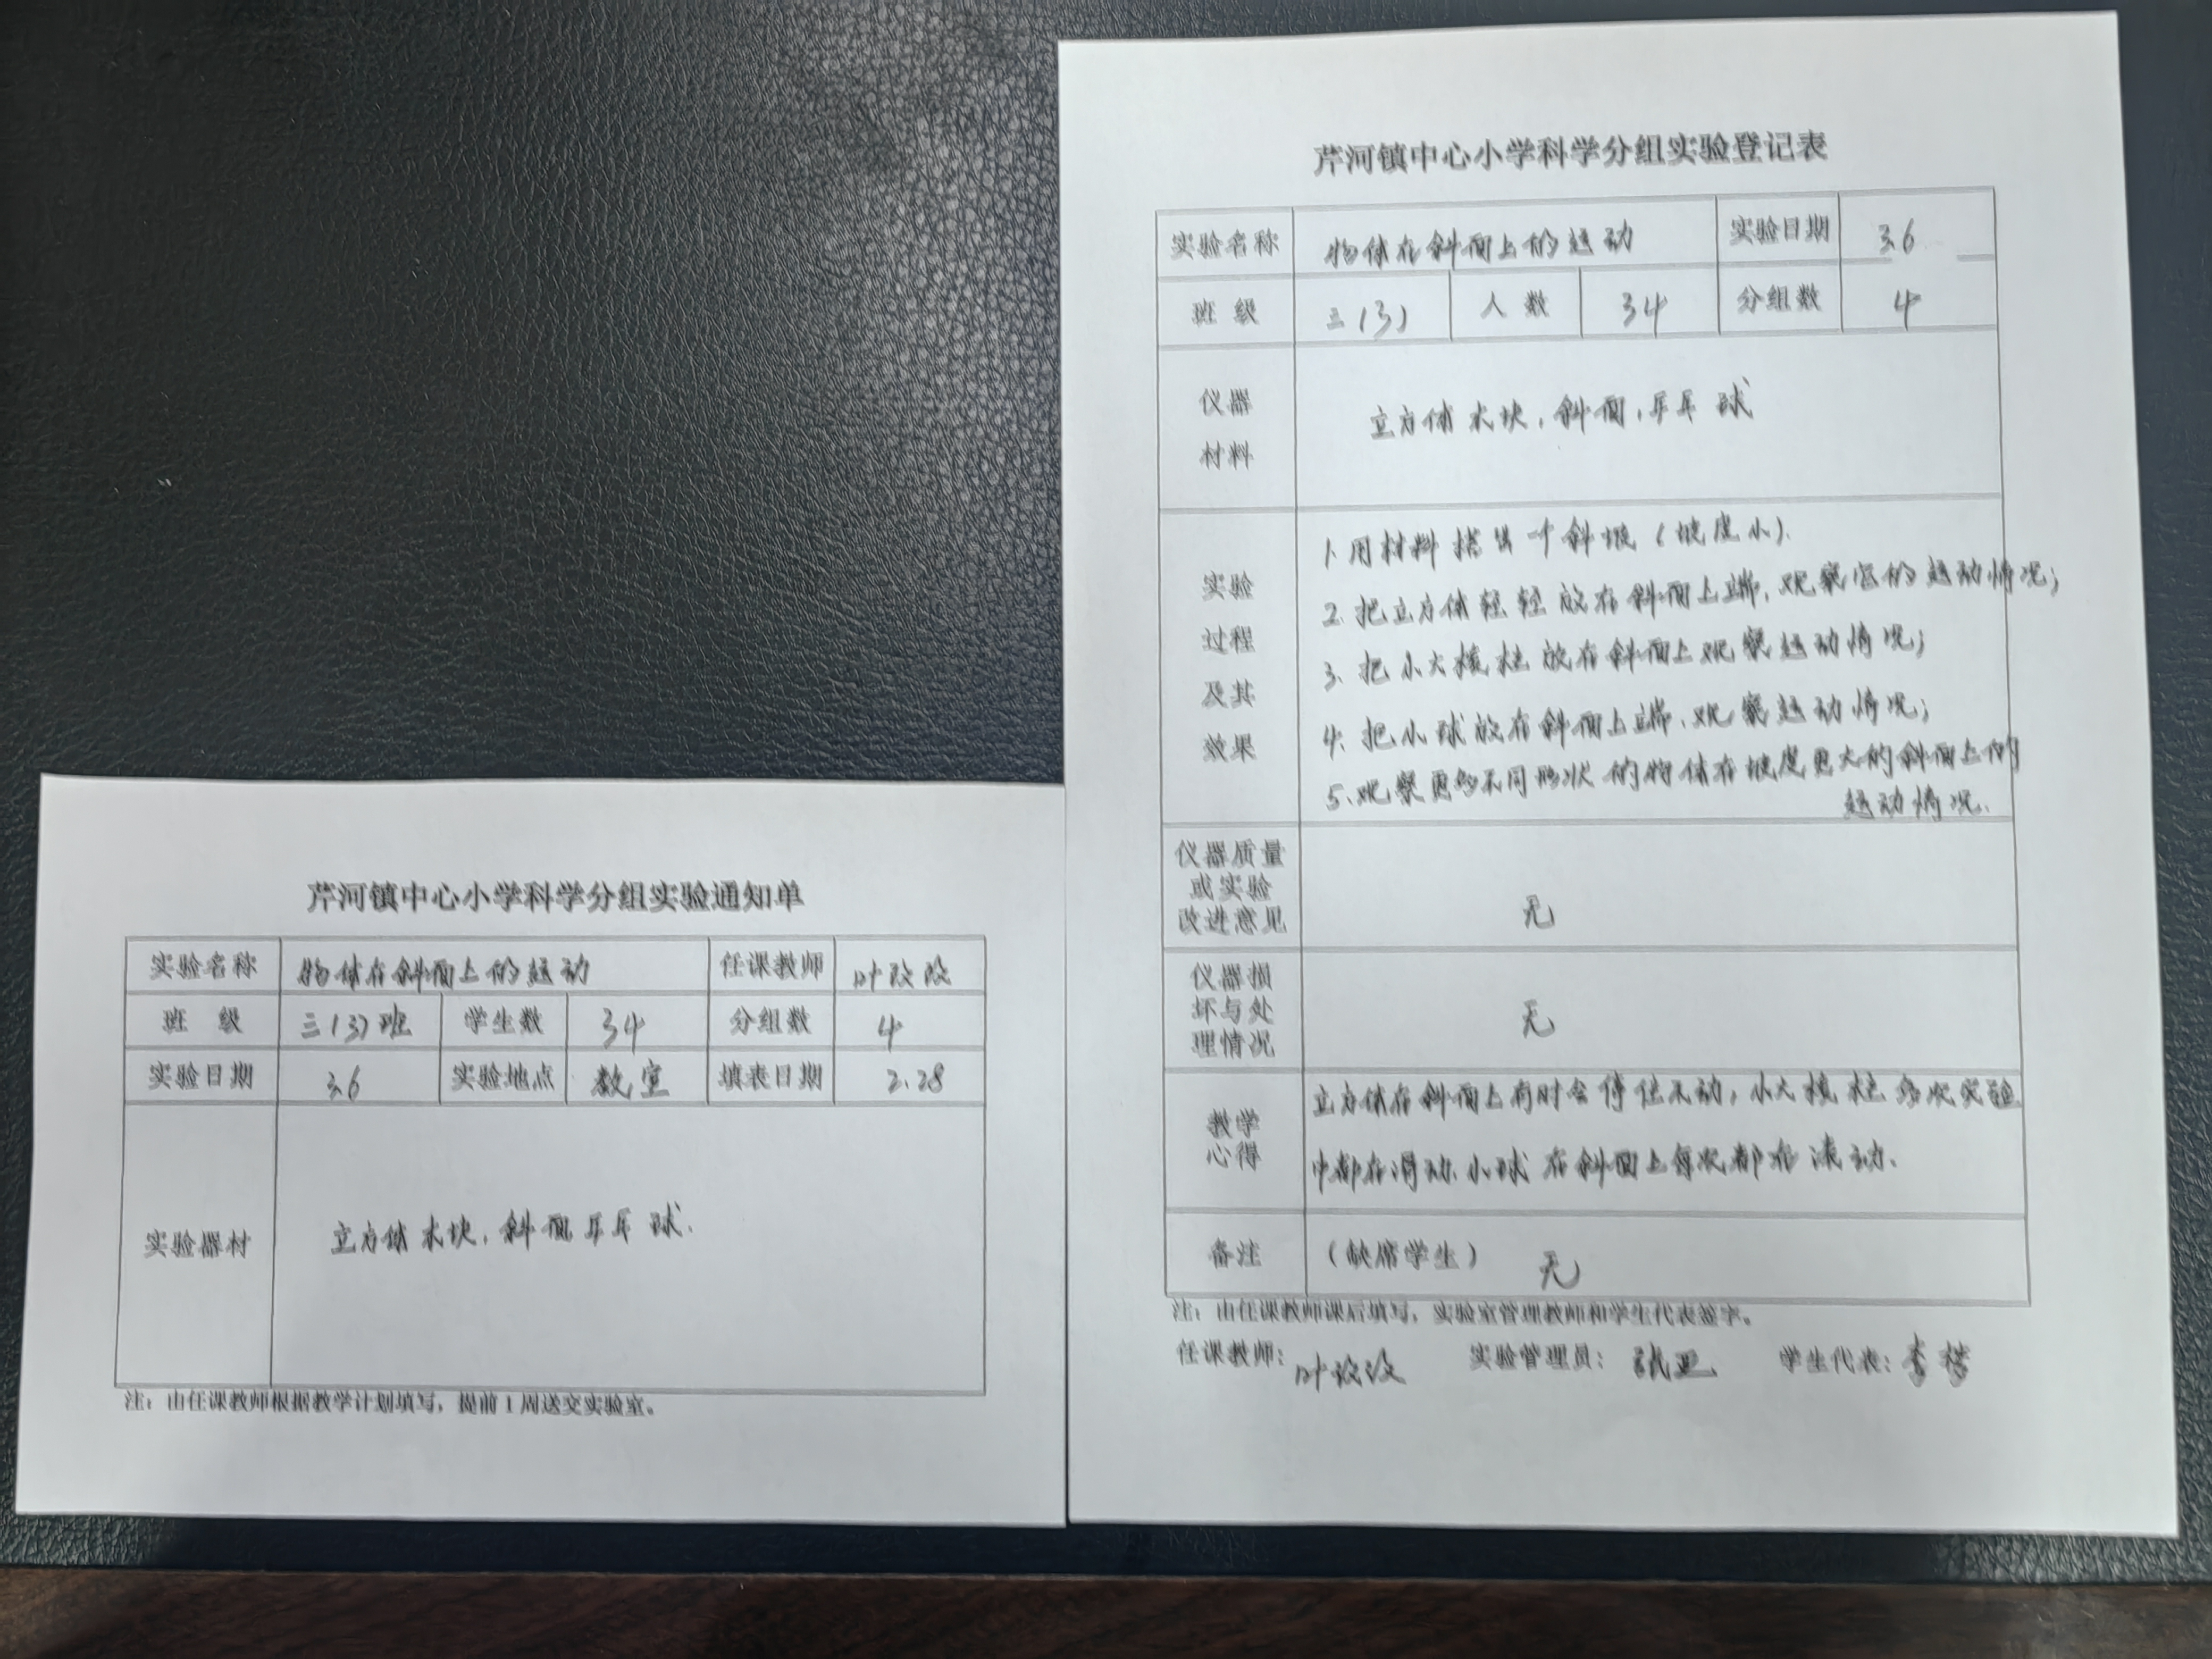 芹河镇中心小学科学分组实验通知单
实验名称 物体在斜面上的运动 任课教师 叶改改
班 级 三(3)班 学生数 34 分组数 4
实验日期 3.6 实验地点 教室 填表日期 2.28
实验器材 立方体木块,斜面,乒乓球.
注:由任课教师根据教学计划填写,提前1周送交实验室。
芹河镇中心小学科学分组实验登记表
实验名称 物体在斜面上的运动 实验日期 3.6
班 级 三(3) 人 数 34 分组数 4
仪器
材料
立方体木块,斜面,乒乓球
实验
过程
及其
效果
1.用材料搭出一个斜坡(坡度小).
2.把立方体轻轻放在斜面上端,观察它的运动情况;
3.把小六棱柱放在斜面上观察运动情况;
4.把小球放在斜面上端,观察运动情况;
5.观察更多不同形状的物体在坡度更大的斜面上的
运动情况.
仪器质量
或实验
改进意见
无
仪器损
坏与处
理情况
无
教学
心得
立方体在斜面上有时会停住不动,小六棱柱多次实验
中都在滑动.小球在斜面上每次都在滚动.
备注 (缺席学生) 无
注:由任课教师课后填写,实验室管理教师和学生代表签字。
任课教师:叶改改 实验管理员: 学生代表:李